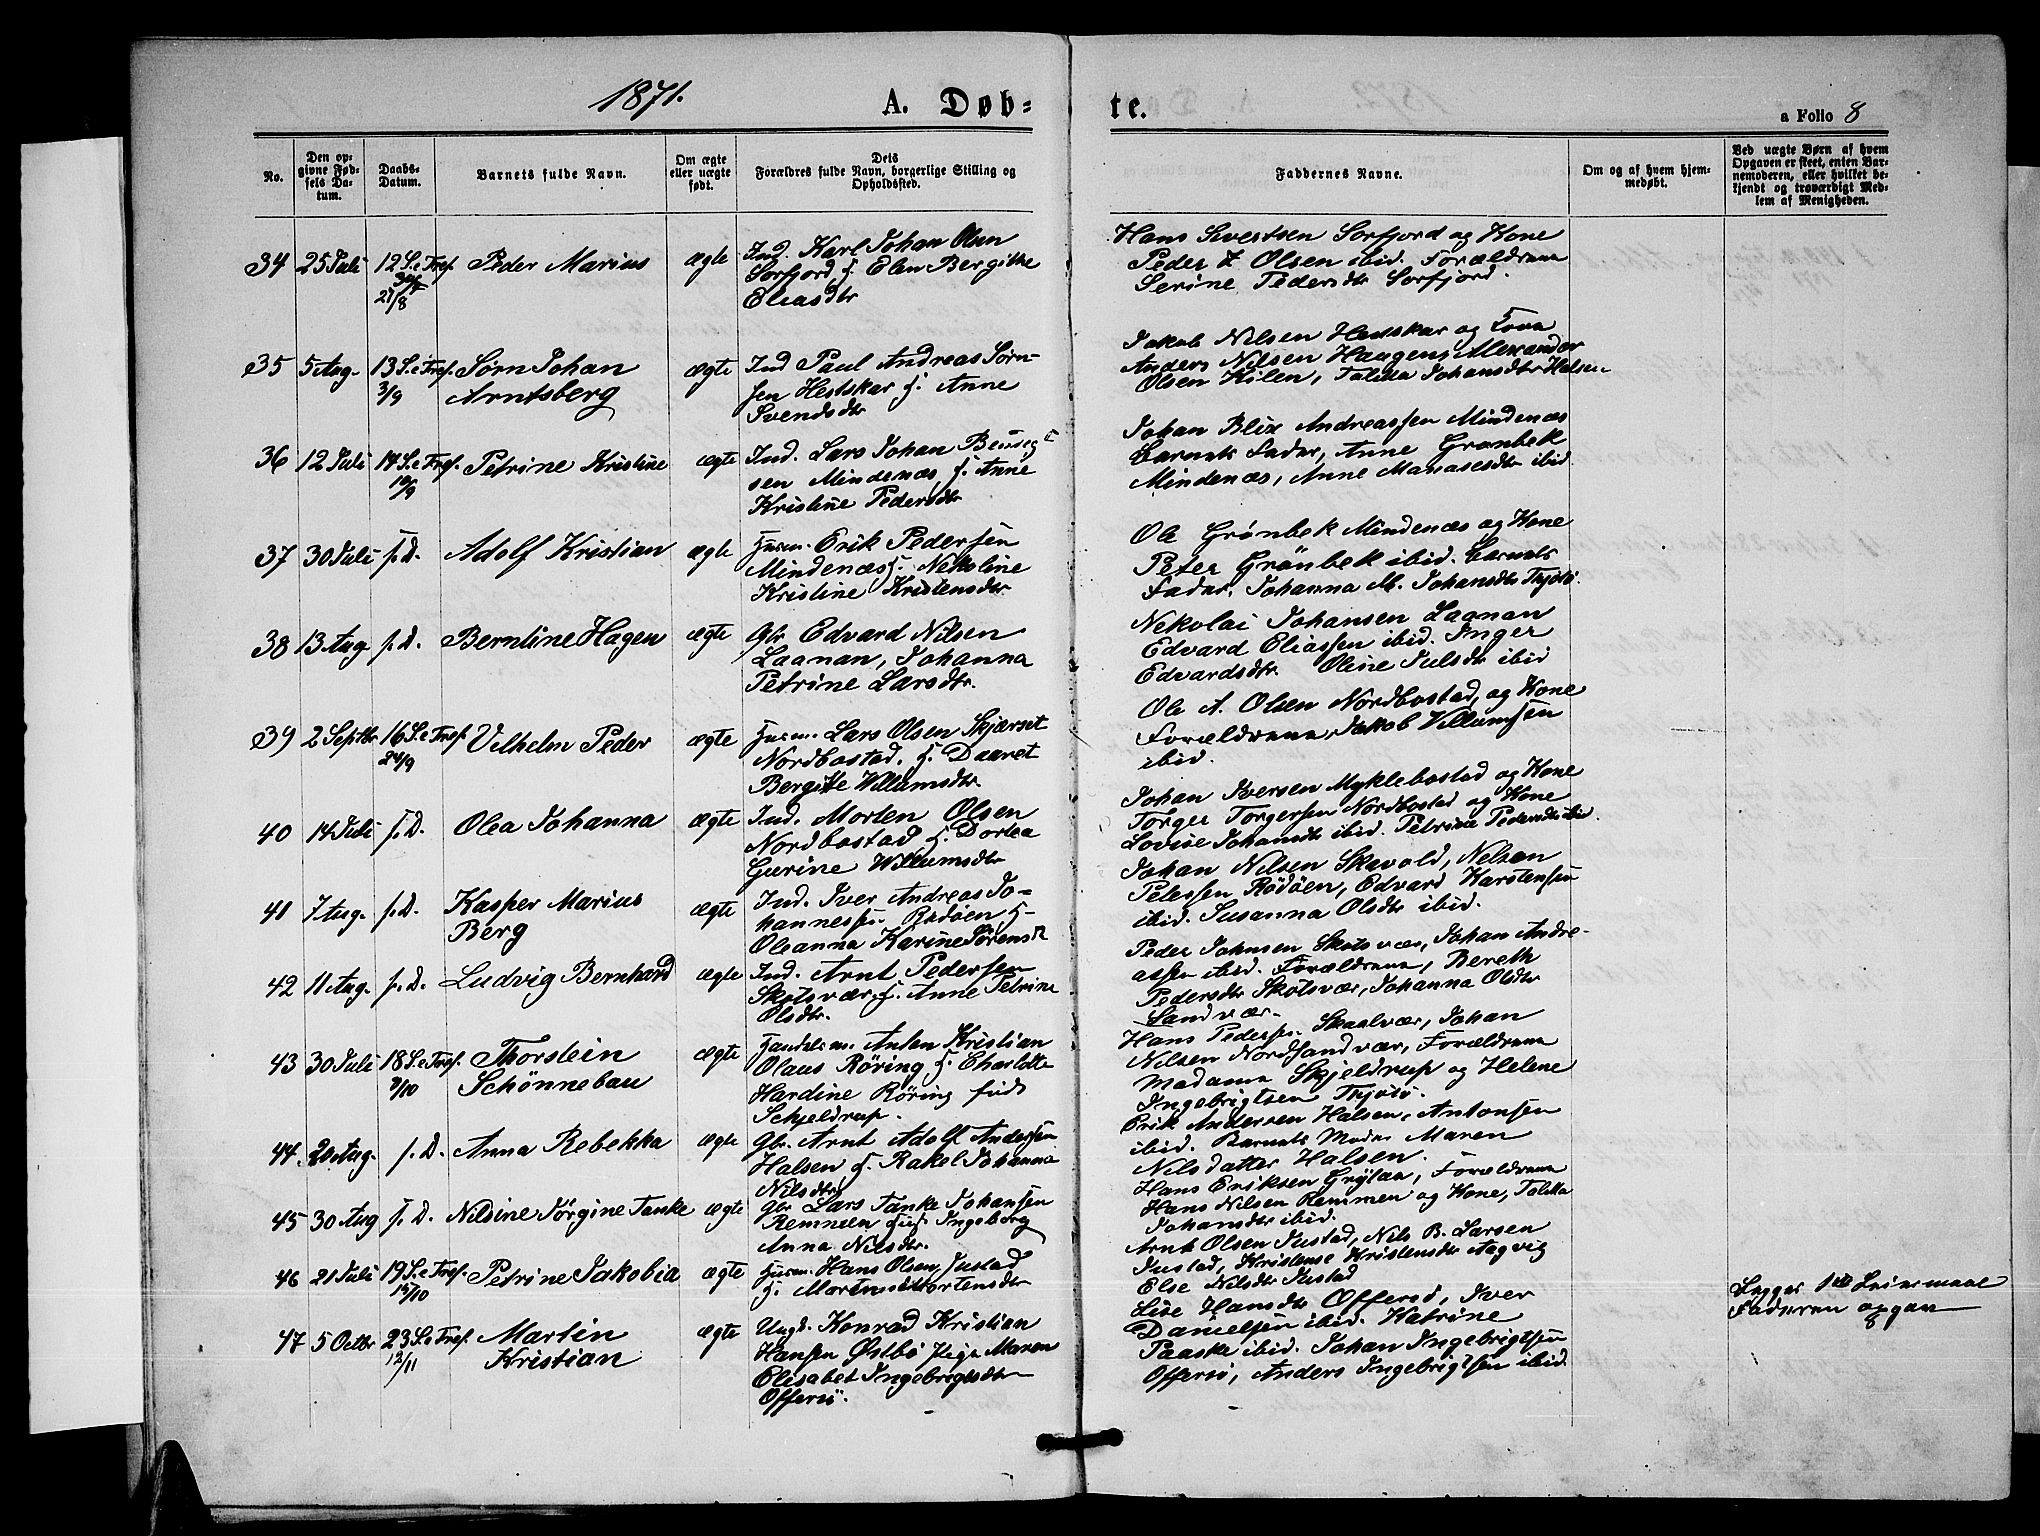 1871.
A. Døb-
te.
a Folio 8
No.
Den op-
givne Fød-
sels Da-
tum.
Daabs-
Datum.
Barnets fulde Navn.
Om ægte
eller uægte
født.
Dets
Forældres fulde Navn, borgerlige Stilling og
Opholdssted.
Faddernes Navne.
Om og af hvem hjem-
medøbt.
Ved uægte Børn af hvem
Opgaven er skeet, enten Bar-
nemoderen, eller hvilket be-
kjendt og troværdigt Med-
lem af Menigheden.
34 25 Juli 12 S. e Tref. 27/8 Peder Marius ægte
Ind. Karl Johan Olsen
Sørfjord H. Elen Bergitte
Eliasdtr
Hans Sivertsen Sørfjord og Kone
Peder Z Olsen ibid. Forældrene
Serine Pedersdtr Sørfjord.
35 5 Aug. 13 S. e Tref. 3/9 Sørn Johan
Arntsberg ægte
Ind Paul Andreas Sørn-
sen Hestskar H. Anne
Svendsdtr
Jakob Nilsen Hestskar og Kone
Anders Nilsen Haugen, Alexander
Olsen Kilen, Talitta Johansdtr Halsen
36 12 Juli 14 S. e Tref. 10/9 Petrine Kristine ægte
Ind. Lars Johan
sen Mindenæs, H. Anne
Kristine Pedersdtr
Johan Blix Andreassen Mindenæs
Barnets Fader, Anne Grønbek
Mindenæs, Anne Manasesdtr ibid
37 30 Juli s. D. Adolf Kristian ægte
Husm. Erik Pedersen
Mindenæs H. Nekoline
Kristine Kristensdtr
Ole Grønbek Mindenæs og Kone
Peter Grönbek ibid. Barnets
Fader. Johanna M. Johansdtr Thjøtö
38 13 Aug s. D. Berntine Hagen ægte
Gbr Edvard Nilsen
Laanan, Johanna
Petrine Larsdtr.
Nekolai Johansen Laanan
Edvard Eliassen ibid. Inger
Edvardsdtr. Oline Julsdtr ibid
39 2 Septbr 16 S. e Tref. 24/9 Vilhelm Peder ægte
Husm. Lars Olsen Skjærset
Nordbostad. H. Daaret
Bergitte Willumsdtr
Ole A. Olsen Nordbostad, og Kone
Forældrene, Jakob Villumsen
ibid.
40 14 Juli s. D. Olea Johanna ægte
Ind. Morten Olsen
Nordbostad, H. Dortea
Gurine Willumsdtr
Johan Iversen Myklebostad og Kone
Torger Torgersen Nordbostad og Kone
Lovise Johansdtr ibid. Petrine Pedersdtr ibid.
41 7 Aug. s. D. Kasper Marius
Berg ægte
Ind. Iver Andreas Jo-
hannessen Rødöen H.
Olsanna Karine Sörensdtr
Johan Nilsen Skavold, Nelsen
Petersen Rödöen, Edvard Karstensen
ibid. Susanna Olsdtr ibid.
42 11 Aug. s. D. Ludvig Bernhard ægte
Ind. Arnt Pedersen
Skotsvær, H. Anne Petrine
Olsdtr.
Peder Johnsen Skotsvær, Johan Andre-
assen ibid. Forældrene, Bereth
Pedersdtr Skotsvær, Johanna Olsdtr
Sandvær.
43 30 Juli 18 S. e Tref. 8/10 Thorstein
Schönneböu ægte
Handelsm. Anton Kristian
Olaus Röring H. Charlotte
Hardine Röring født
Schjeldrup.
Hans Pedersen Skaalvær, Johan
Nilsen Nordsandvær, Forældrene
Madame Skjeldrup og Helene
Ingebrigtsen Thjötö.
44. 20 Aug. s. D. Anna Rebekka ægte
Gbr. Arnt Adolf Andersen
Halsen H. Rakel Johanna
Nilsdtr
Erik Andersen Halsen, Antonsen
ibid. Barnets Moder Maren
Nilsdatter Halsen.
45 30 Aug s. D. Nilsine Jørgine Tanke ægte
Gbr. Lars Tanke Johansen
Remmen Ingeborg
Anna Nilsdtr.
Hans Eriksen Grytaa, Forældrene
Hans Nilsen Remmen og Kone, Talitta
Johansdtr ibid.
46 21 Juli 19 S. e Tref. 15/10 Petrine Jakobia ægte
Husm. Hans Olsen, Justad
H. Mortensdtr
Arnt Olsen Justad, Nils B. Larsen
Justad, Kristense Kristensdtr Aagvig
Else Nilsdtr Justad
47 5 Octbr 23 S. e Tref. 12/11 Martin
Kristian ægte
Ungk. Konrad Kristian
Hansen Østbö, Pige Maren
Elisabet Ingebrigtsdtr
Offersö.
Lise Hansdtr Offersö, Iver
Danielsen ibid. Katrine
Paaske ibid. Johan Ingebrigtsen
Offersö, Anders Ingebrigtsen ibid.
Begges 1ste Leiermaal
Faderen opgav